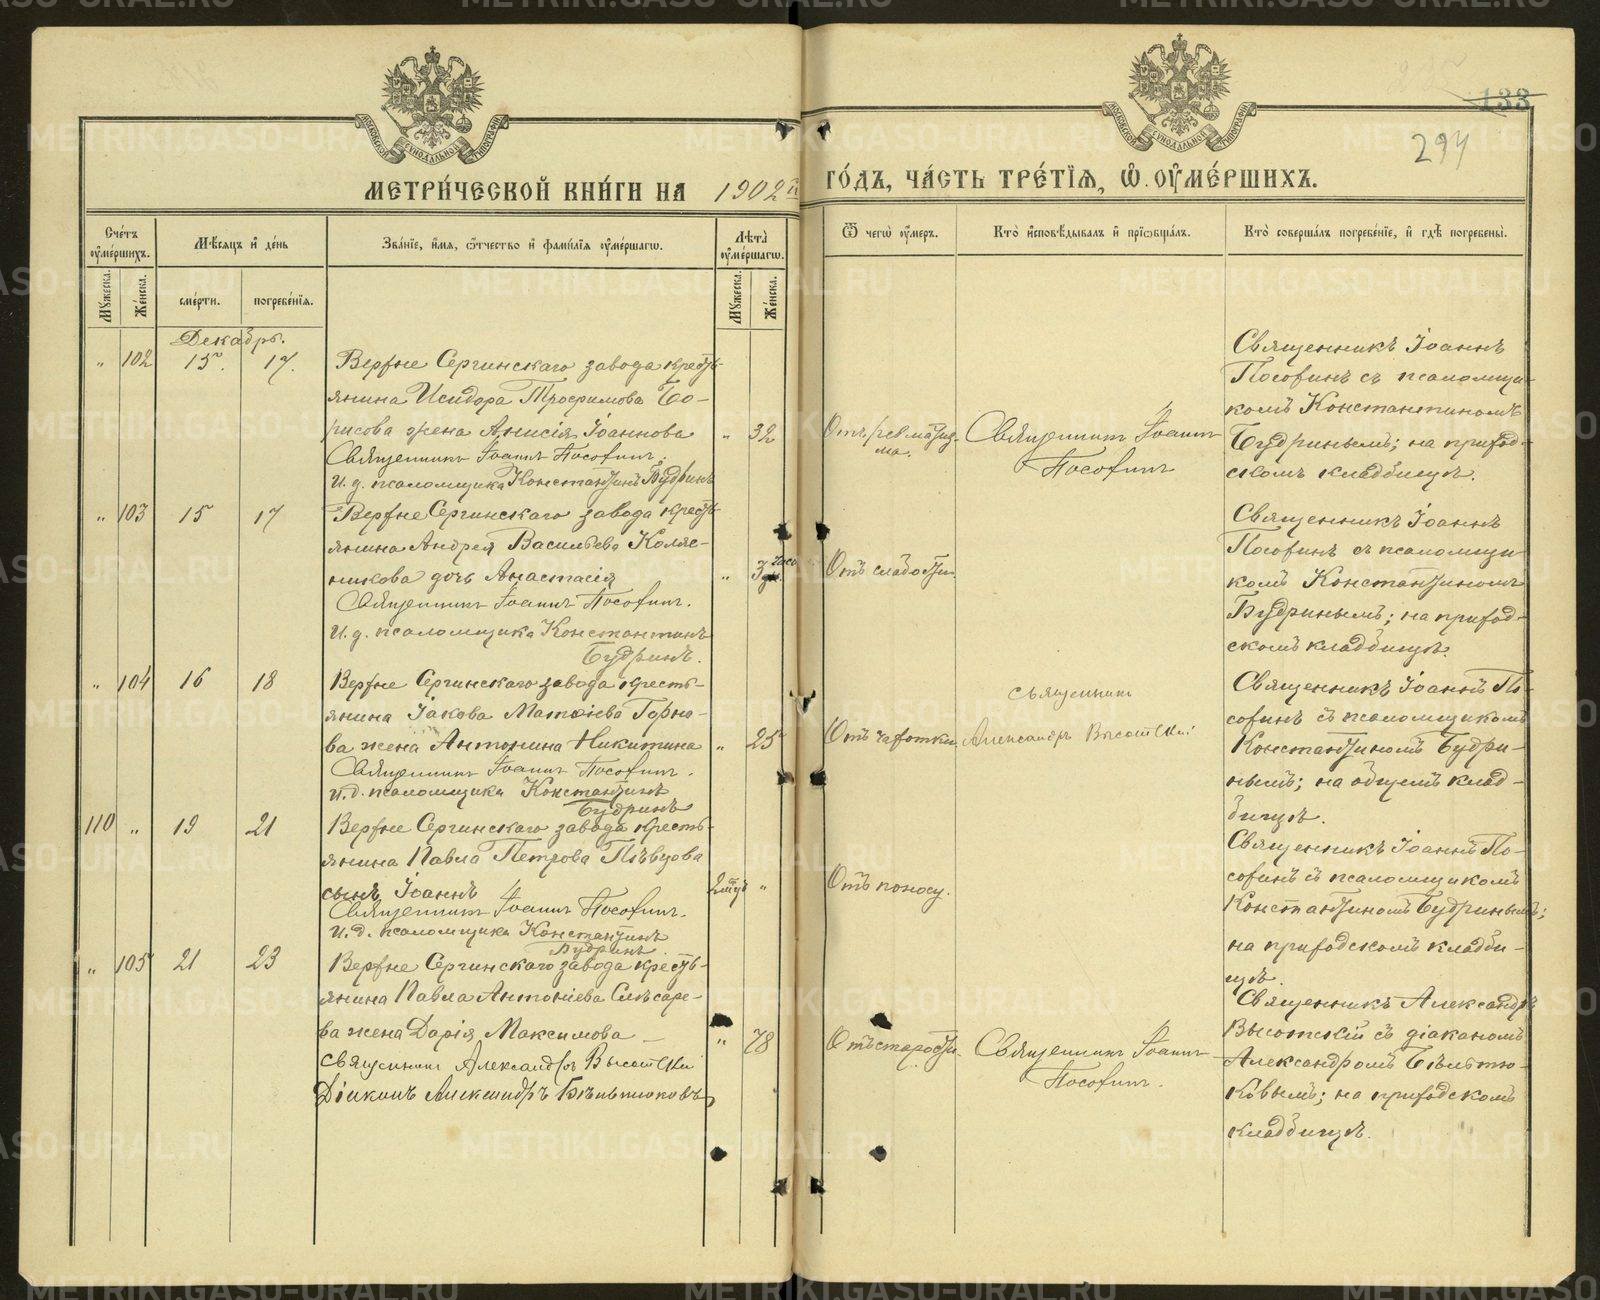 133
294
МЕТРИ́ЧЕСКОЙ КНИ́ГИ НА 1902й ГО́ДЪ, ЧА́СТЬ ТРЕ́ТІѦ, Ѽ ОУМЕ́РШИХЪ.
Сче́тъ оуме́ршихъ.
Мѣ́сяцъ и де́нь
Зва́нїе, и́мя, ѻ́тчество и фами́лїя оуме́ршагѡ.
Лѣта̀ оуме́ршагѡ.
Ѿ чегѡ̀ оу́меръ.
Кто̀ и҆сповѣ́дывалъ и прїѡбща́лъ.
Кто̀ соверша́лъ погребе́нїе, и гдѣ̀ погребены̀.
Мꙋ́жеска.
Же́нска.
сме́рти.
погребе́нїя.
Мꙋ́жеска.
Же́нска.
Декабрь.
" 102 15. 17.
Верхне Сергинскаго завода кресть-
янина Исидора Трофимова Бо-
рисова жена Анисія Іоаннова
" 32
Священникъ Іоаннъ Посохинъ.
И. д. псаломщика Константинъ Будринъ
Отъ ревматиз-
ма.
Священникъ Іоаннъ
Посохинъ
Священникъ Іоаннъ
Посохинъ съ псаломщи-
комъ Константиномъ
Будринымъ; на приход-
скомъ кладбищѣ.
" 103 15 17
Верхне Сергинскаго завода кресть-
янина Андрея Васильева Коляс-
никова дочь Анастасія
"
Священникъ Іоаннъ Посохинъ.
И. д. псаломщика Константинъ
Будринъ.
Отъ слабости.
Священникъ Іоаннъ
Посохинъ съ псаломщи-
комъ Константиномъ
Будринымъ; на приход-
скомъ кладбищѣ.
" 104 16 18
Верхне Сергинскаго завода кресть-
янина Іакова Матѳіева Горно-
ва жена Антонина Никитина
" 25
Священникъ Іоаннъ Посохинъ.
И. д. псаломщика Константинъ
Будринъ
Отъ чахотки
Священникъ
Александръ Высотскій
Священникъ Іоаннъ По-
сохинъ съ псаломщикомъ
Константиномъ Будри-
нымъ; на общемъ клад-
бищѣ.
110 " 19 21
Верхне Сергинскаго завода кресть-
янина Павла Петрова Пѣвцова
сынъ Іоаннъ
"
Священникъ Іоаннъ Посохинъ.
И. д. псаломщика Константинъ
Будринъ.
Отъ поносу.
Священникъ Іоаннъ По-
сохинъ съ псаломщикомъ
Константиномъ Будринымъ;
на приходскомъ кладби-
щѣ.
" 105 21 23
Верхне Сергинскаго завода кресть-
янина Павла Антоніева Слѣсаре-
ва жена Дарія Максимова
" 78
Священникъ Александръ Высотскій
Діаконъ Александръ Бѣльтюковъ
Отъ старости.
Священникъ Іоаннъ
Посохинъ.
Священникъ Александръ
Высотскій съ діакономъ
Александромъ Бѣльтю-
ковымъ; на приходскомъ
кладбищѣ.
METRIKI.GASO-URAL.RU